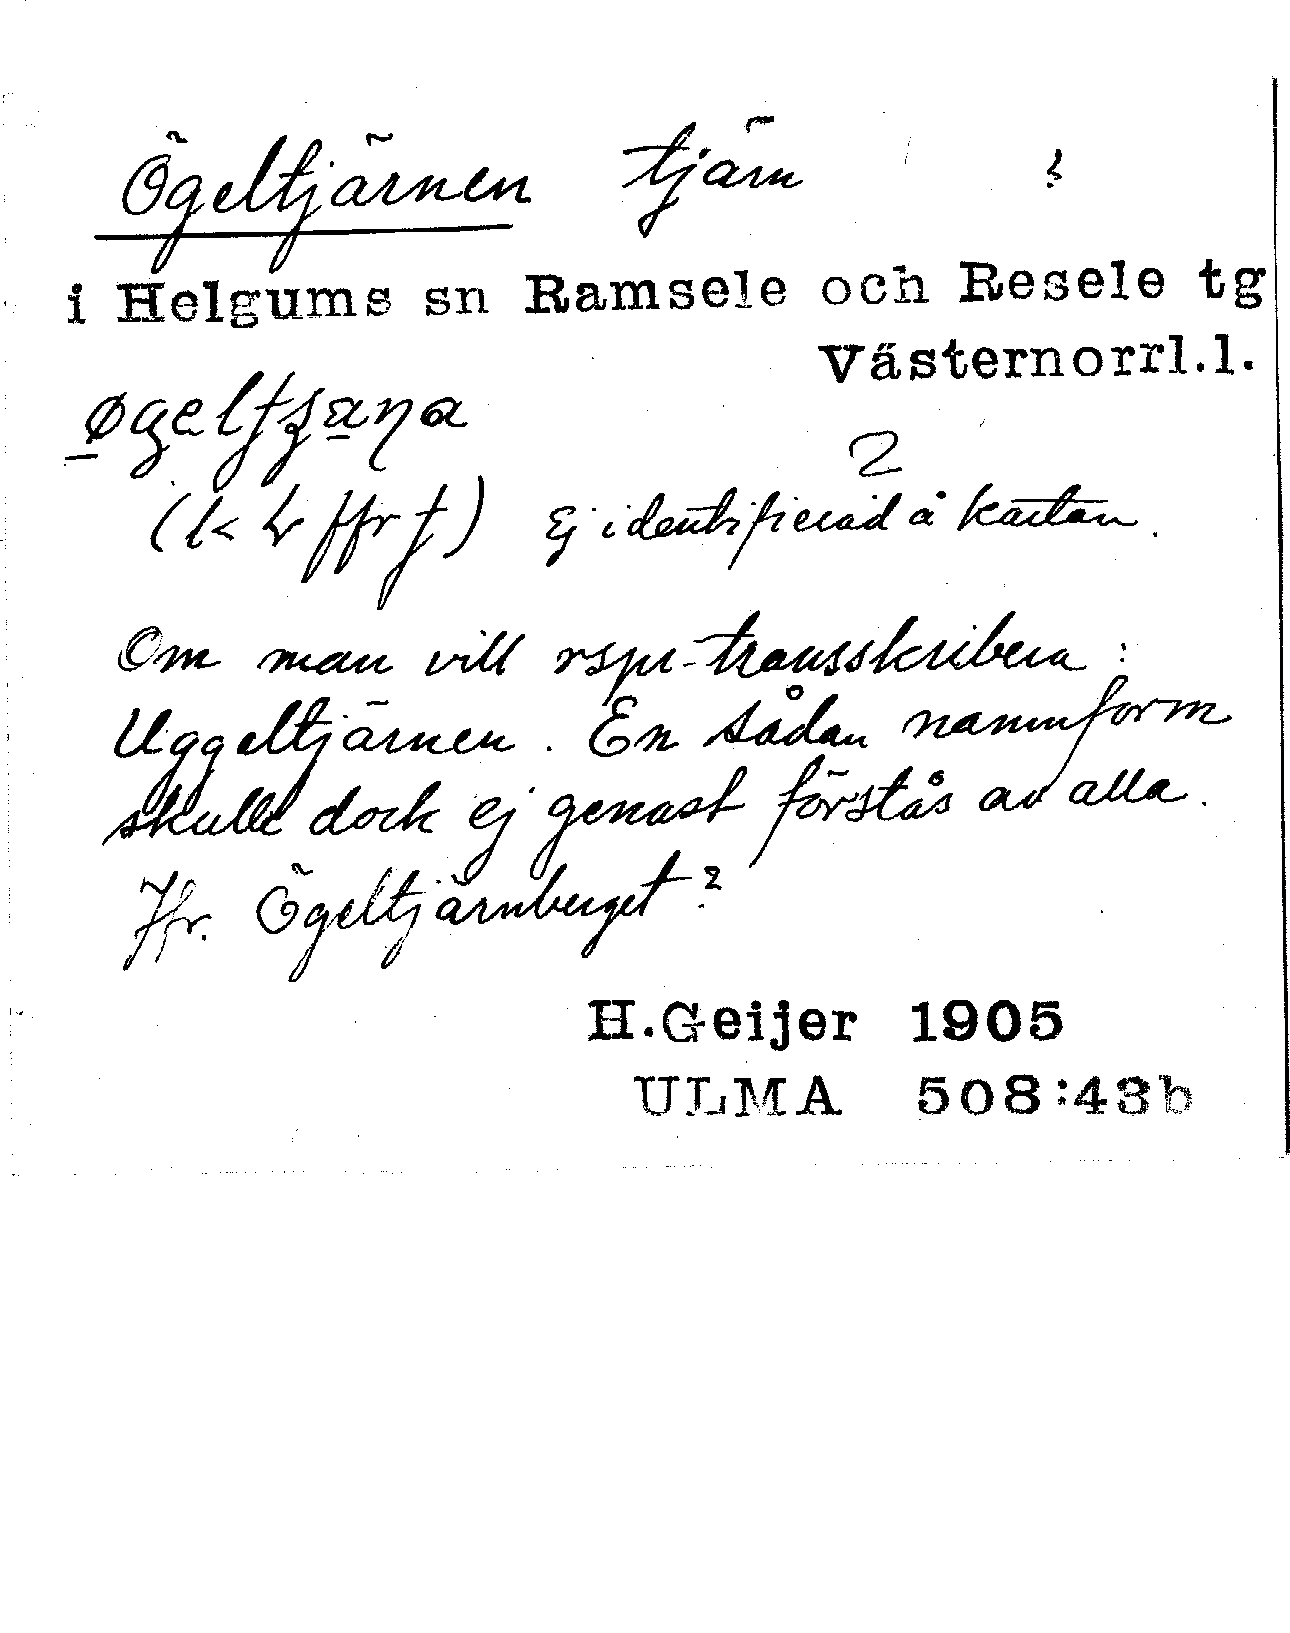 Ögeltjärnen tjärn ?
i Helgums sn Ramsele och Resele tg
Västernorrl.l.
2
Ej identifierad å kartan.
Om man vill rspr-transskribera :
Uggeltjärnen. En sådan namnform
skulle dock ej genast förstås av alla.
Jfr. Ögeltjärnberget ?
H.Geijer 1905
ULMA 508:43b